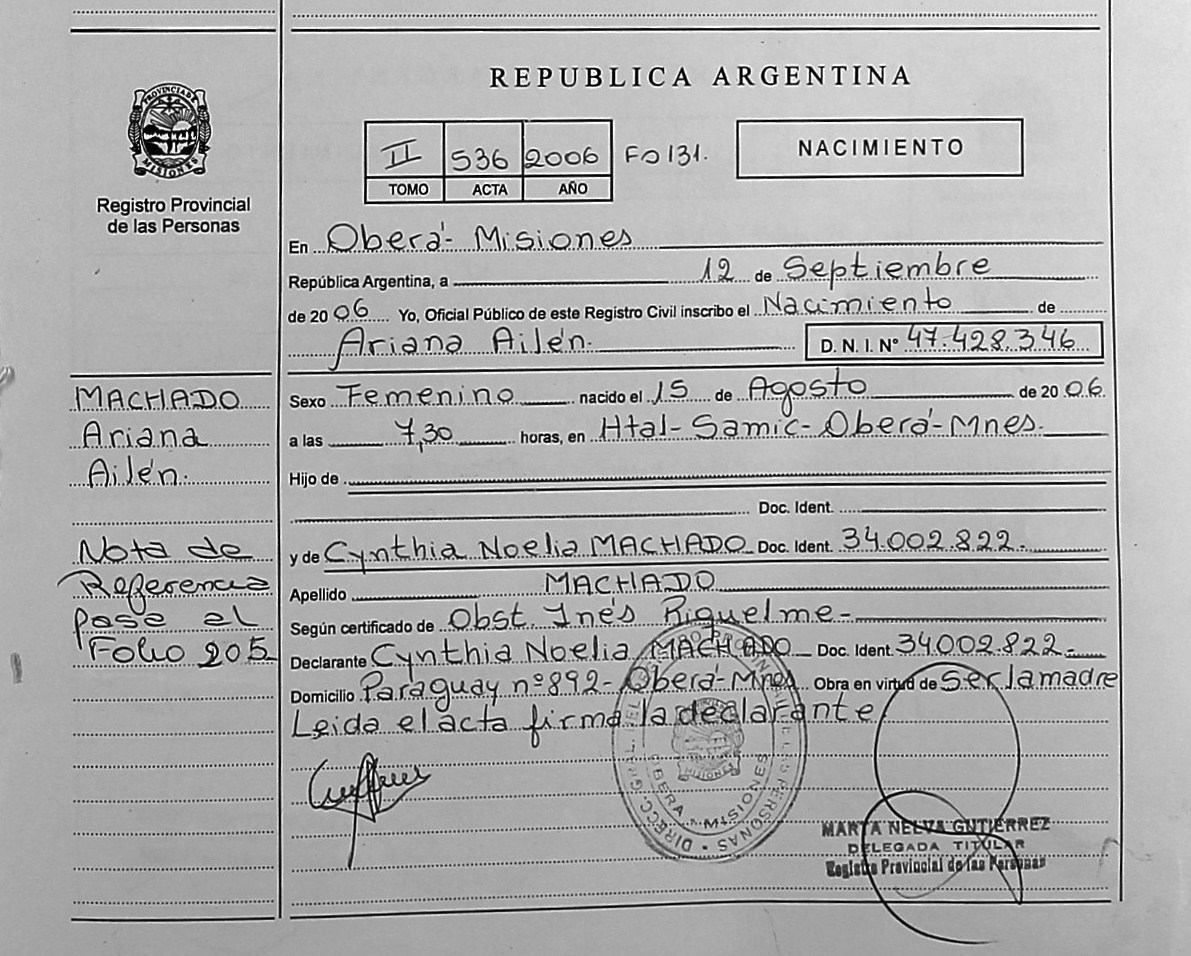 REPUBLICA ARGENTINA
PROVINCIA DE MISIONES
Registro Provincial
de las Personas
II 536 2006 Fo 131.
TOMO ACTA AÑO
NACIMIENTO
En Oberá- Misiones
República Argentina, a 12 de Septiembre
de 2006 Yo, Oficial Público de este Registro Civil inscribo el Nacimiento de
Ariana Ailén. D. N. I. Nº 47.428.346
MACHADO
Ariana
Ailén.
Sexo Femenino nacido el 15 de Agosto de 2006.
a las 7,30 horas, en Htal- Samic- Oberá- Mnes.
Hijo de
Doc. Ident.
y de Cynthia Noelia MACHADO Doc. Ident. 34.002.822.
Apellido MACHADO
Nota de
Referencia
pase al
Folio 205
Según certificado de Obst. Inés Riquelme-
Declarante Cynthia Noelia MACHADO Doc. Ident. 34.002.822.
Domicilio Paraguay nº 892- Oberá- Mnes Obra en virtud de ser la madre
Leida el acta firma la declarante
OBERA - MISIONES
MARTA NELVA GUTIERREZ
DELEGADA TITULAR
Registro Provincial de las Personas